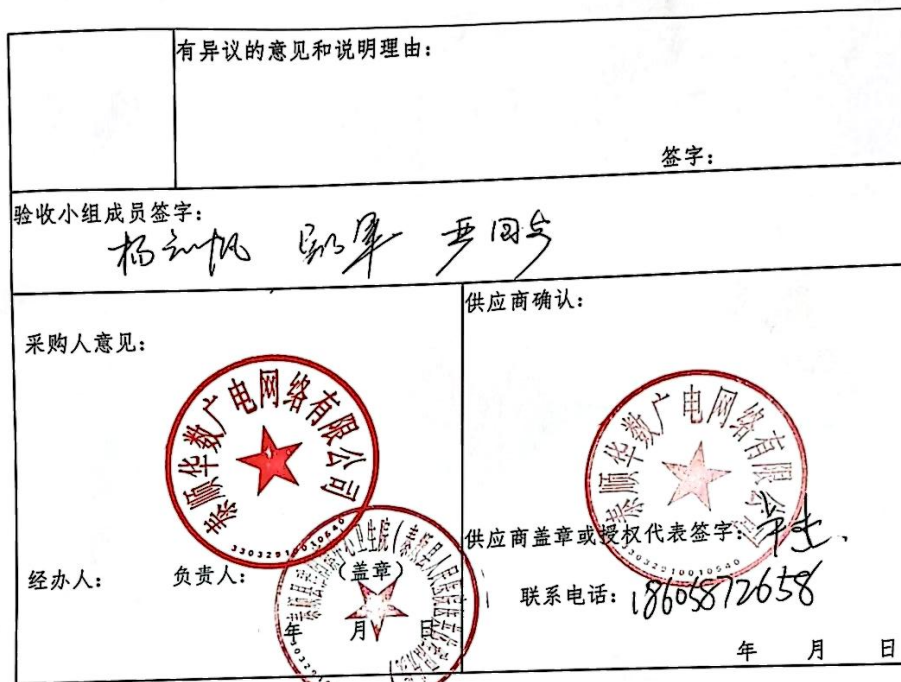 有异议的意见和说明理由：
签字：
验收小组成员签字：
采购人意见：
泰顺华数广电网络有限公司
经办人： 负责人： （盖章）
年 月 日
供应商确认：
泰顺华数广电网络有限公司
33032910010540
供应商盖章或授权代表签字：
联系电话：18605872658
年 月 日